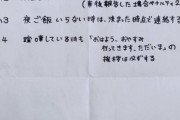 (事後報告した場合ペナルティ2
3 夜ご飯いらない時は、決まった時点で連絡する
4 喧嘩している時も「おはよう、おやすみ
行ってきます、ただいま」の
挨拶は必ずする